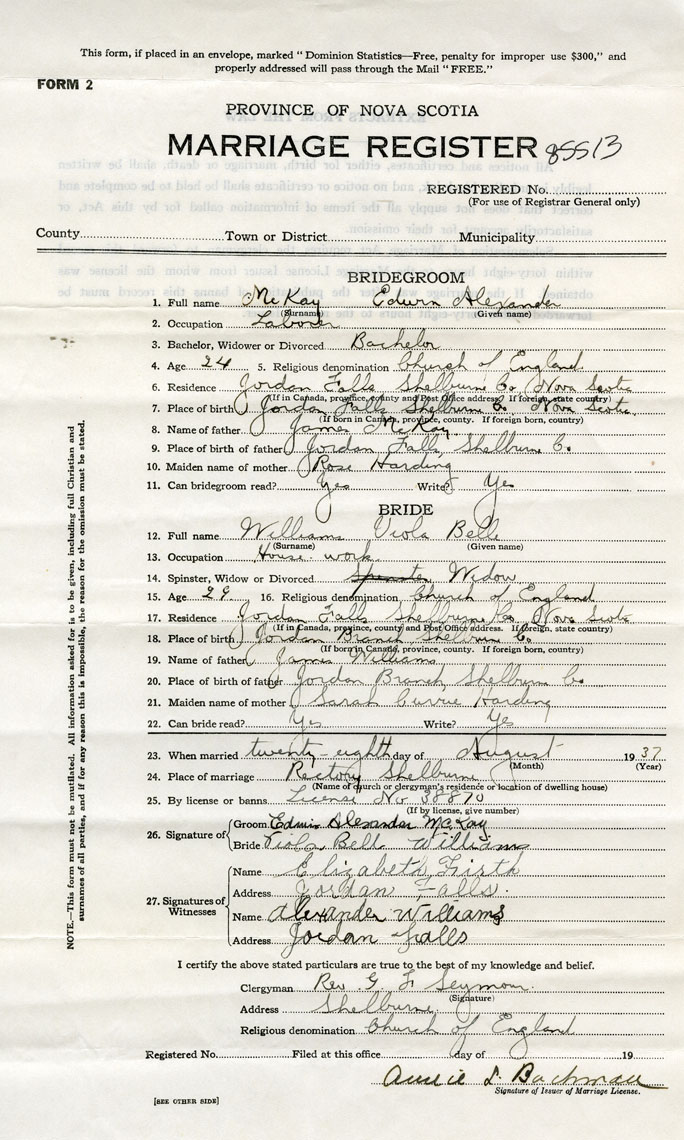 This form, if placed in an envelope, marked "Dominion Statistics—Free, penalty for improper use $300," and
properly addressed will pass through the Mail "FREE."
FORM 2
PROVINCE OF NOVA SCOTIA
MARRIAGE REGISTER 85513
REGISTERED No.
(For use of Registrar General only)
County Town or District Municipality
BRIDEGROOM
1. Full name McKay Edwin Alexander
(Surname) (Given name)
2. Occupation Laborer
3. Bachelor, Widower or Divorced Bachelor
4. Age 24 5. Religious denomination Church of England
6. Residence Jordan Falls Shelburne Co. Nova Scotia
(If in Canada, province, county and Post Office address. If foreign, state country)
7. Place of birth Jordan Falls Shelburne Co. Nova Scotia
(If born in Canada, province, county. If foreign born, country)
8. Name of father James McKay
9. Place of birth of father Jordan Falls, Shelburn Co.
10. Maiden name of mother Rose Harding
11. Can bridegroom read? Yes Write? Yes
BRIDE
12. Full name Williams Viola Bell
(Surname) (Given name)
13. Occupation House work
14. Spinster, Widow or Divorced Spinster Widow
15. Age 29 16. Religious denomination Church of England
17. Residence Jordan Falls Shelburne Co. Nova Scotia
(If in Canada, province, county and Post Office address. If foreign, state country)
18. Place of birth Jordan Branch Shelburne Co.
(If born in Canada, province, county. If foreign born, country)
19. Name of father James Williams
20. Place of birth of father Jordan Branch, Shelburn Co.
21. Maiden name of mother Sarah Currie Harding
22. Can bride read? Yes Write? Yes
23. When married twenty-eighth day of August 1937
(Month) (Year)
24. Place of marriage Rectory Shelburne
(Name of church or clergyman's residence or location of dwelling house)
25. By license or banns License No 38870
(If by license, give number)
26. Signature of Groom Edwin Alexander McKay
Bride Viola Bell Williams
27. Signatures of Witnesses
Name Elizabeth Firth
Address Jordan Falls.
Name Alexander Williams
Address Jordan falls
I certify the above stated particulars are true to the best of my knowledge and belief.
Clergyman Rev. G F Seymour.
(Signature)
Address Shelburne
Religious denomination Church of England
Registered No. Filed at this office day of 19
L. Bachman
Signature of Issuer of Marriage License.
[SEE OTHER SIDE]
NOTE.—This form must not be mutilated. All information asked for is to be given, including full Christian and
surnames of all parties, and if for any reason this is impossible, the reason for the omission must be stated.